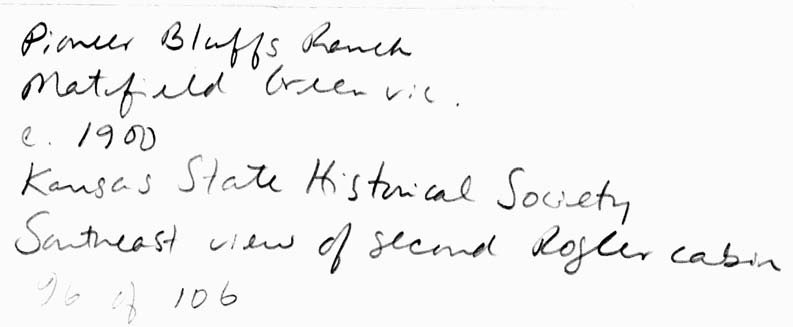 Pioneer Bluffs Ranch
Matfield Green vic.
c. 1900
Kansas State Historical Society
Southeast view of second Rogler cabin
96 of 106